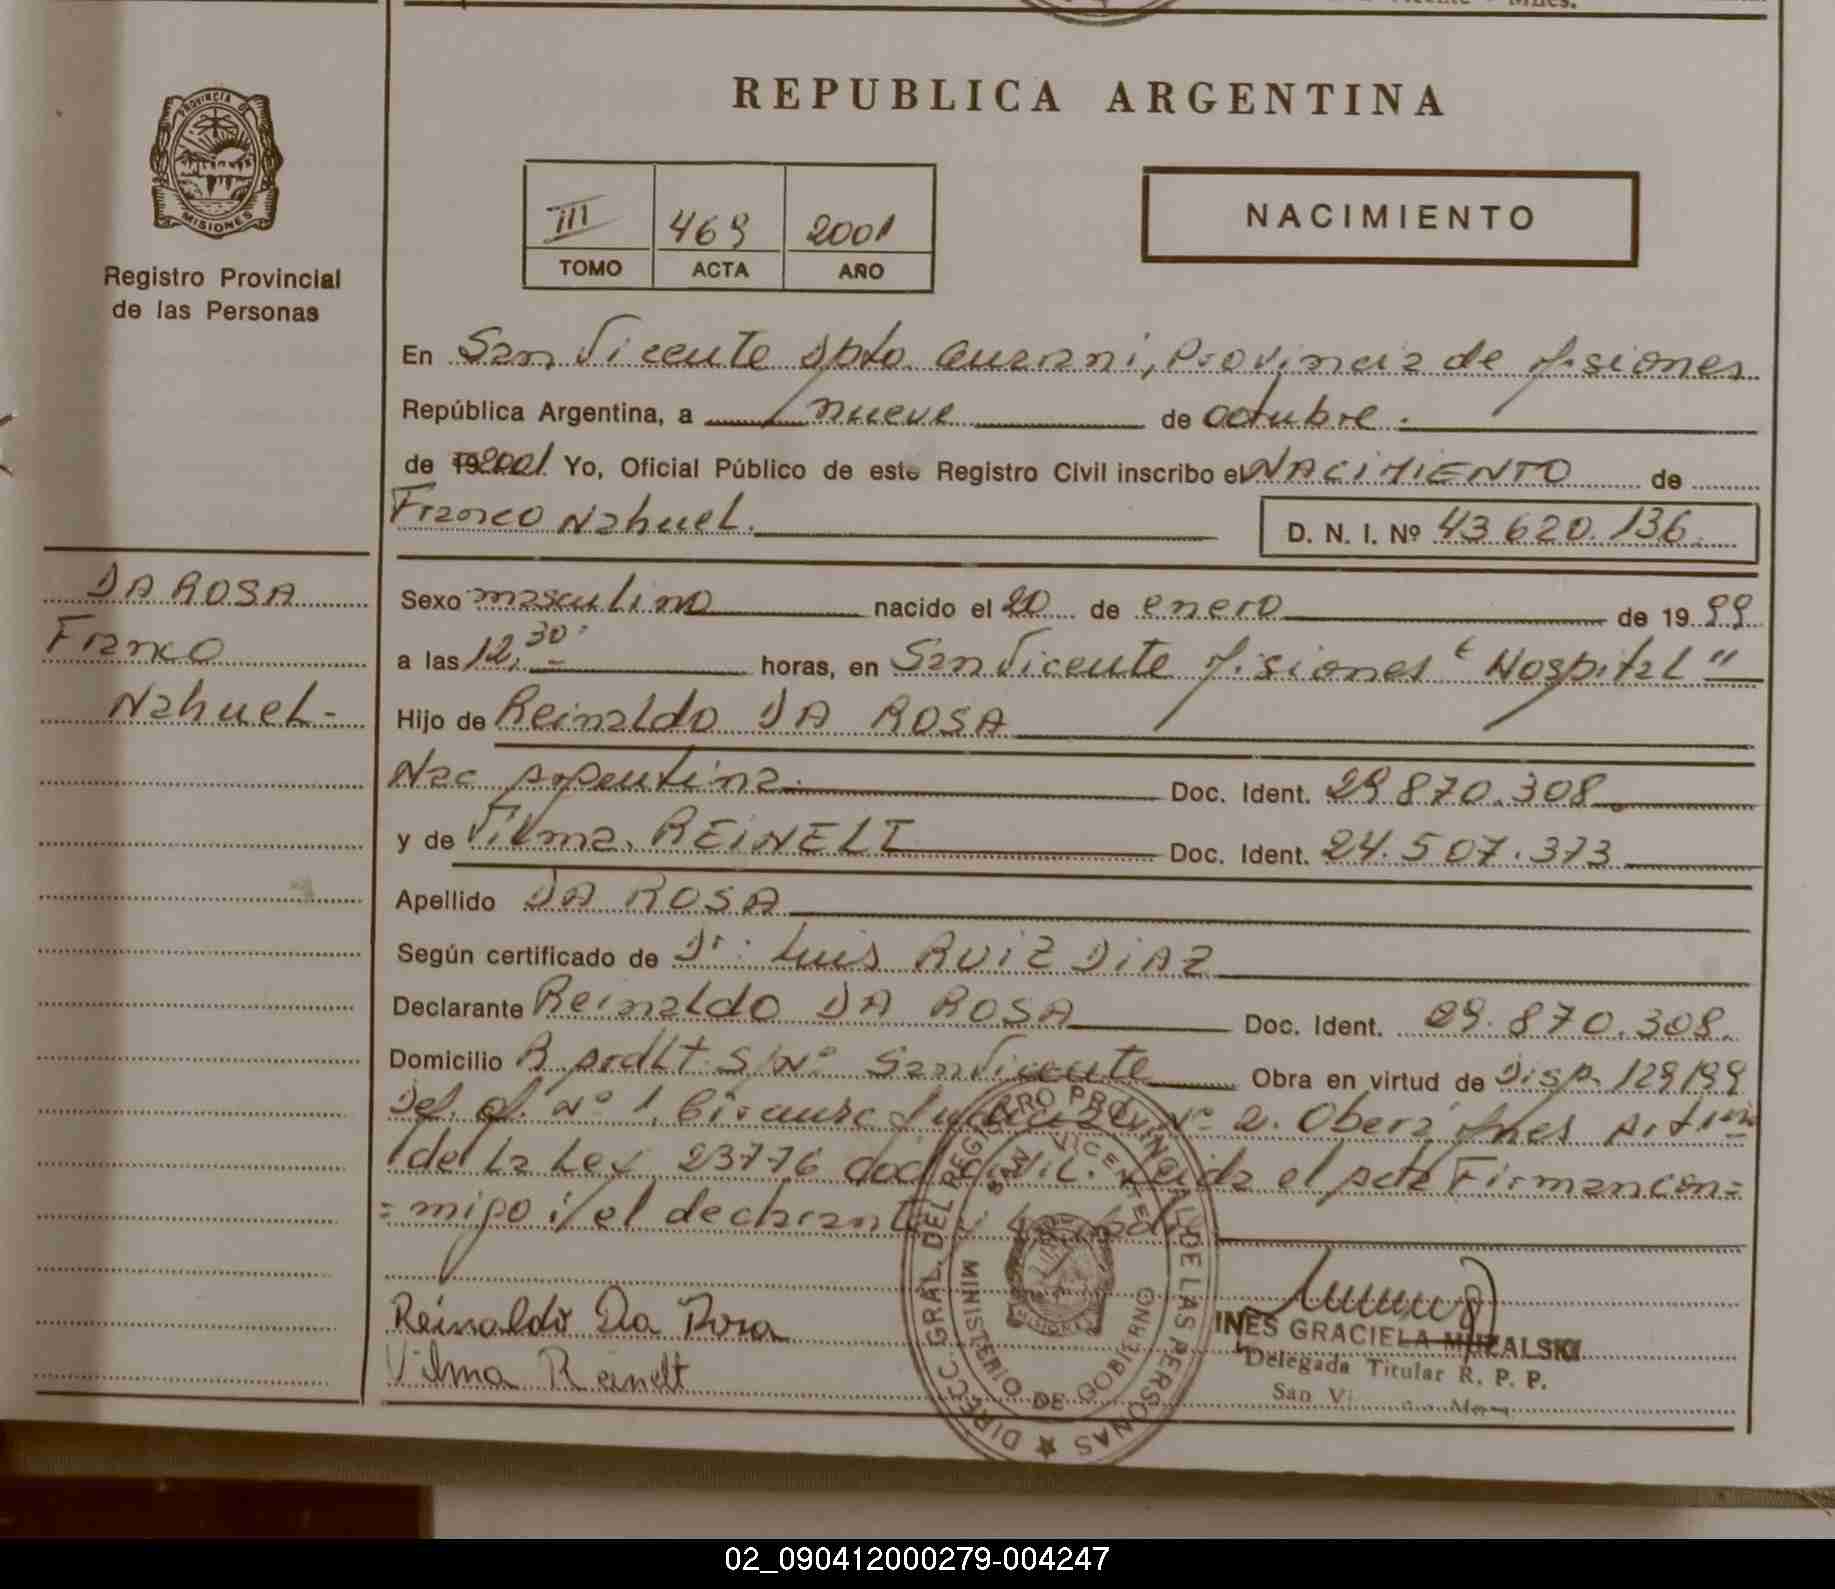 REPUBLICA ARGENTINA
PROVINCIA DE
MISIONES
Registro Provincial
de las Personas
III 469 2001
TOMO ACTA AÑO
NACIMIENTO
En San Vicente Dpto. Guarani, Provincia de Misiones
República Argentina, a nueve de octubre.
de 192001 Yo, Oficial Público de este Registro Civil inscribo el NACIMIENTO de
Franco Nahuel.
D. N. I. Nº 43 620.136.
DA ROSA
Franco
Nahuel-
Sexo masculino nacido el 20 de enero de 1999
a las 12,30 horas, en San Vicente Misiones "Hospital"
Hijo de Reinaldo DA ROSA
Nac Argentina Doc. Ident. 29 870.308.
y de Vilma REINELT Doc. Ident. 24.507.373
Apellido DA ROSA
Según certificado de Dr. Luis RUIZ DIAZ
Declarante Reinaldo DA ROSA Doc. Ident. 29.870.308.
Domicilio S/Nº San Vicente Obra en virtud de Disp. 129/99
Def. of. Nº 1, Nº 2. Obera Mnes
de la Ley 23776 Leida el acta Firman con=
=migo el declarante
Reinaldo Da Rosa
Vilma Reinelt
DIRECC. GRAL. DEL REGISTRO PROVINCIAL DE LAS PERSONAS
SAN VICENTE
MINISTERIO DE GOBIERNO
MISIONES
INES GRACIELA MUZALSKI
Delegada Titular R. P. P.
San Vi
02_090412000279-004247